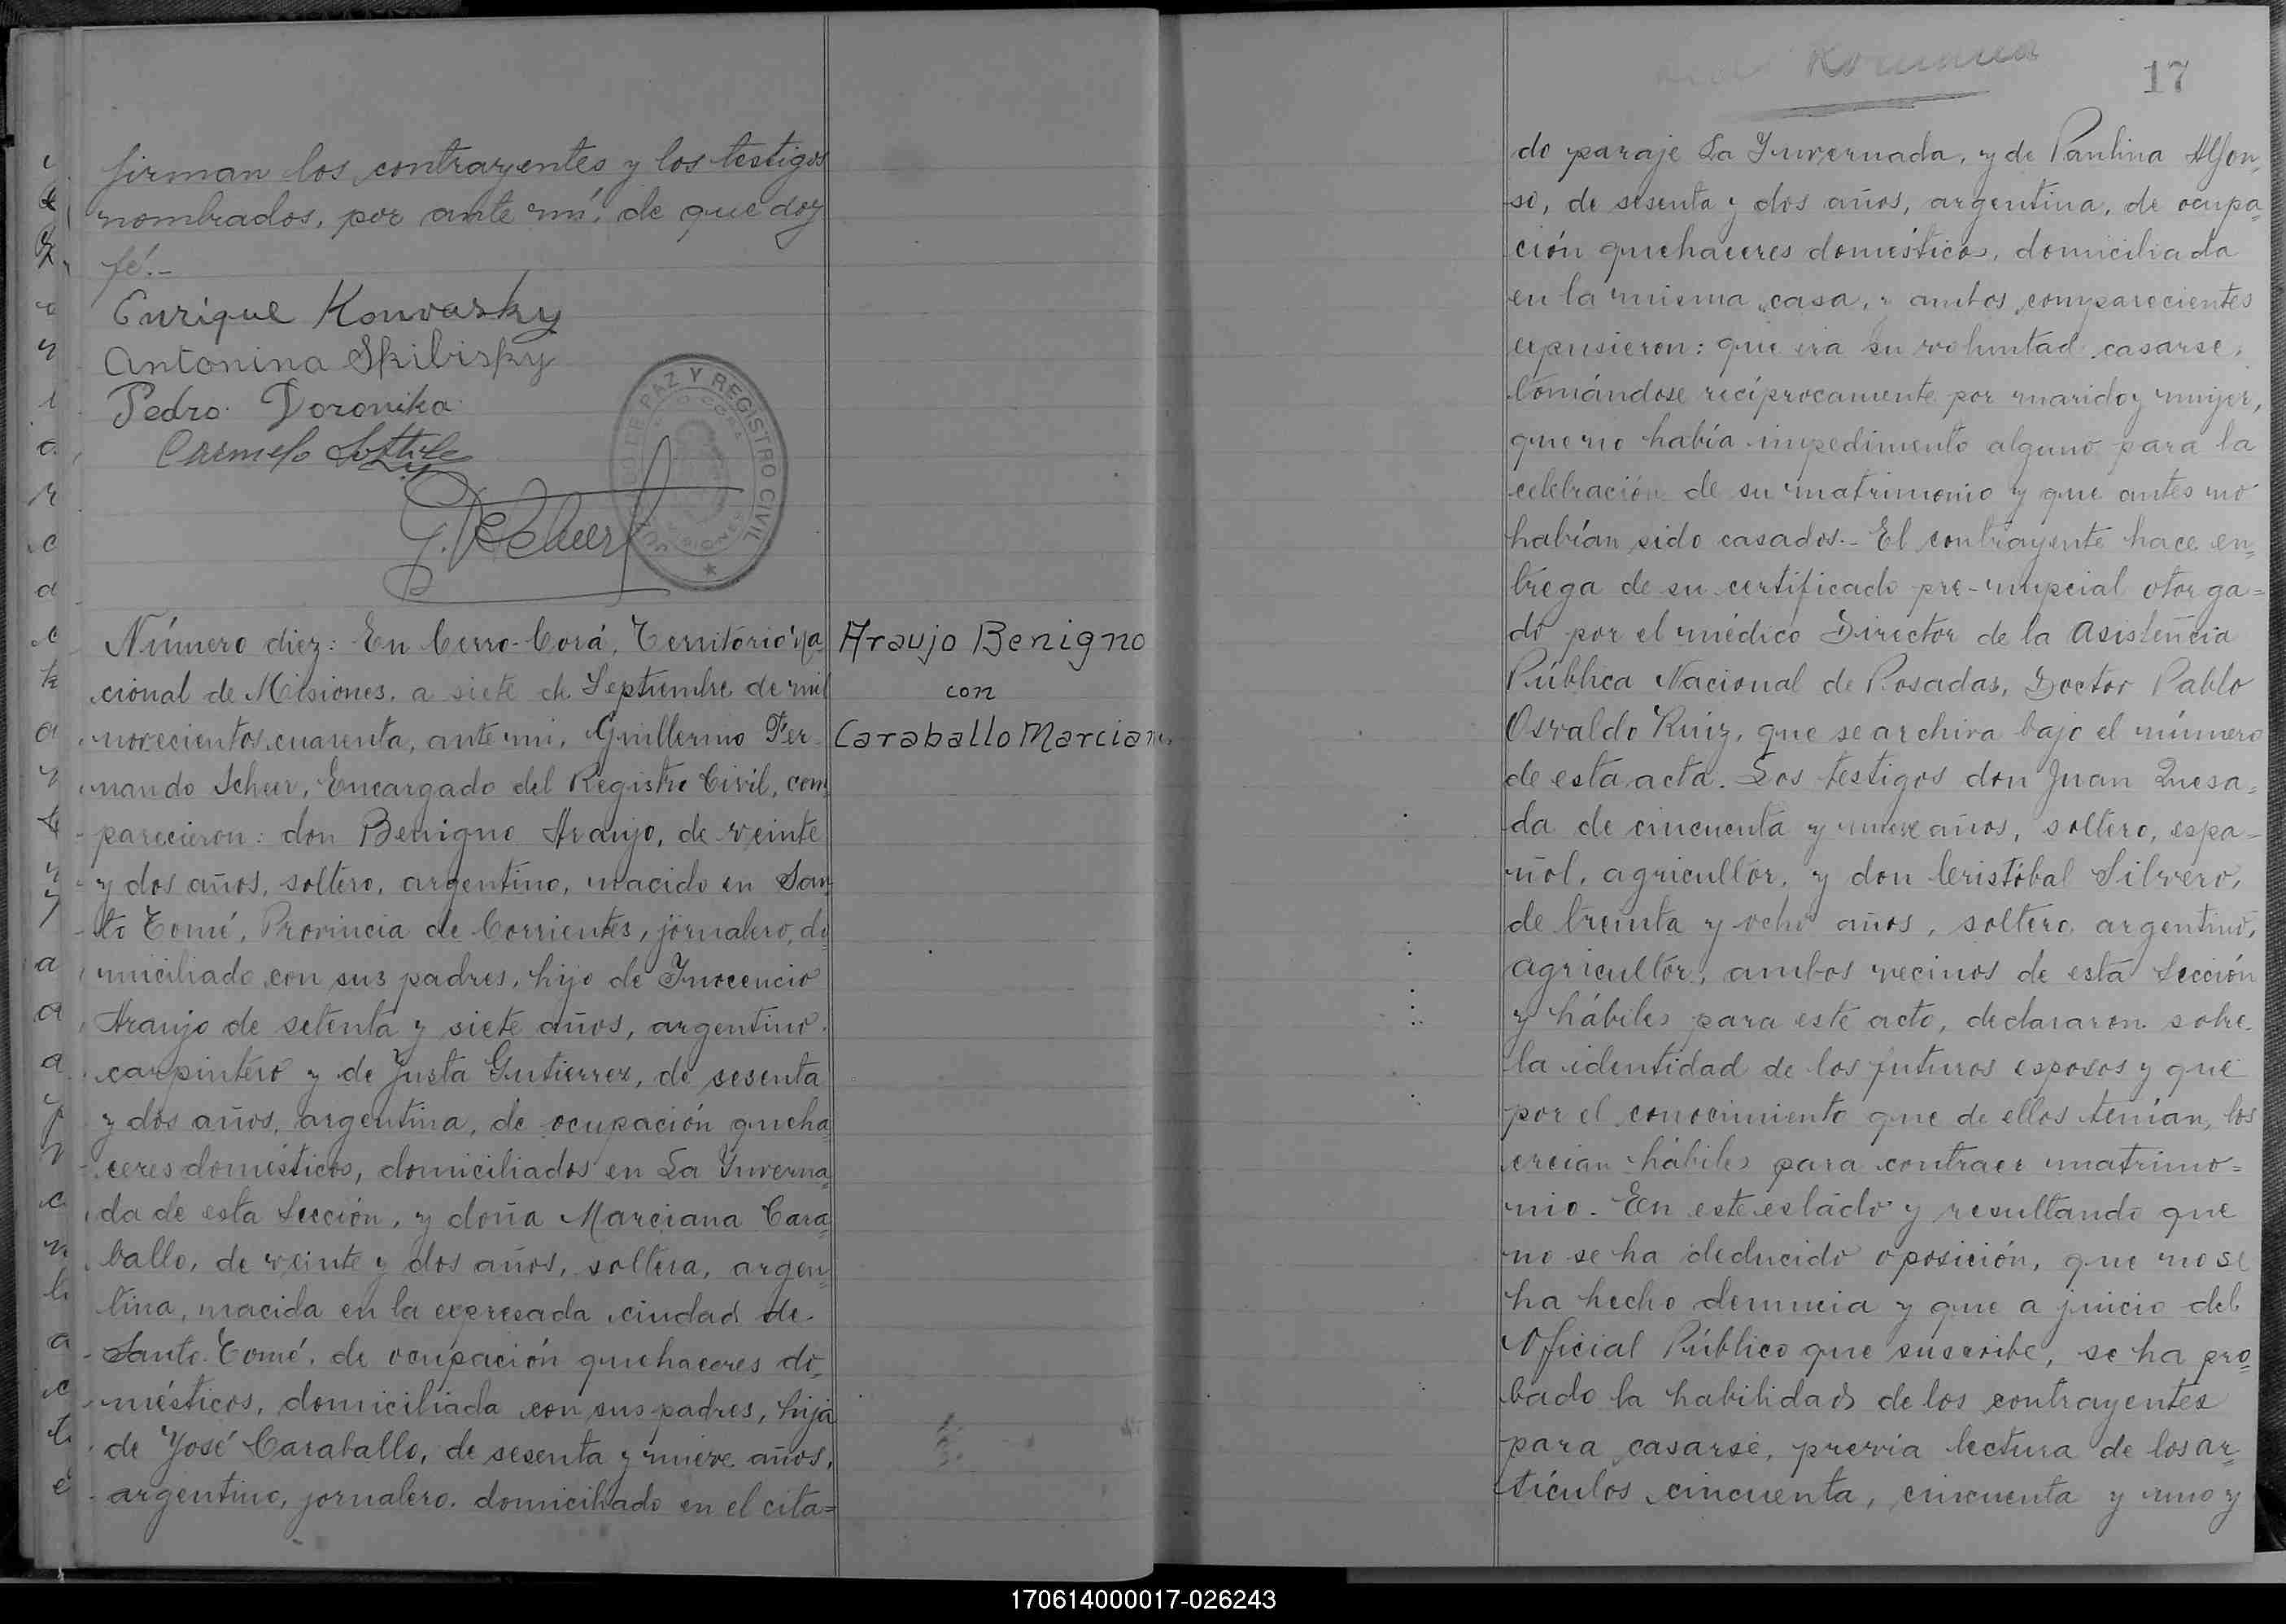 firman los contrayentes y los testigos
nombrados, por ante mí, de que doy
fé.-
Enrique Konvasky
Antonina Skibisky
Pedro Doronika
Carmelo
G. F. Scheer
PAZ Y REGISTRO CIVIL
Número diez: En Cerro-Corá, Territorio Na
cional de Misiones, a siete de Septiembre de mil
novecientos cuarenta, ante mi, Guillermo Fer
nando Scheer, Encargado del Registro Civil, com
parecieron: don Benigno Araujo, de veinte
y dos años, soltero, argentino, nacido en San
to Tomé, Provincia de Corrientes, jornalero, do
miciliado con sus padres, hijo de Inocencio
Araujo de setenta y siete años, argentino,
carpintero y de Justa Gutierrez, de sesenta
y dos años, argentina, de ocupación queha
ceres domésticos, domiciliados en La Inverna
da de esta Sección, y doña Marciana Cara
ballo, de veinte y dos años, soltera, argen
tina, nacida en la expresada ciudad de
Santo Tomé, de ocupación quehaceres do
mésticos, domiciliada con sus padres, hija
de José Caraballo, de sesenta y nueve años,
argentino, jornalero, domiciliado en el cita=
Araujo Benigno
con
Caraballo Marciana
17
do paraje La Invernada, y de Paulina Alfon
so, de sesenta y dos años, argentina, de ocupa=
ción quehaceres domésticos, domiciliada
en la misma casa, y ambos comparecientes
expusieron: que era su voluntad casarse,
tomándose recíprocamente por marido y mujer,
que no había impedimento alguno para la
celebración de su matrimonio y que antes no
habían sido casados.- El contrayente hace en=
trega de su certificado pre-nupcial otorga=
do por el médico Director de la Asistencia
Pública Nacional de Posadas, Doctor Pablo
Osvaldo Ruiz, que se archiva bajo el número
de esta acta. Los testigos don Juan Quesa=
da de cincuenta y nueve años, soltero, espa-
ñol, agricultor, y don Cristóbal Silvero,
de treinta y ocho años, soltero, argentino,
agricultor, ambos vecinos de esta Sección
y hábiles para este acto, declararon sobre
la identidad de los futuros esposos y que
por el conocimiento que de ellos tenían, los
creian hábiles para contraer matrimo=
nio. En este estado y resultando que
no se ha deducido oposición, que no se
ha hecho denuncia y que a juicio del
Oficial Público que suscribe, se ha pro=
bado la habilidad de los contrayentes
para casarse, previa lectura de los ar=
tículos cincuenta, cincuenta y uno y
170614000017-026243